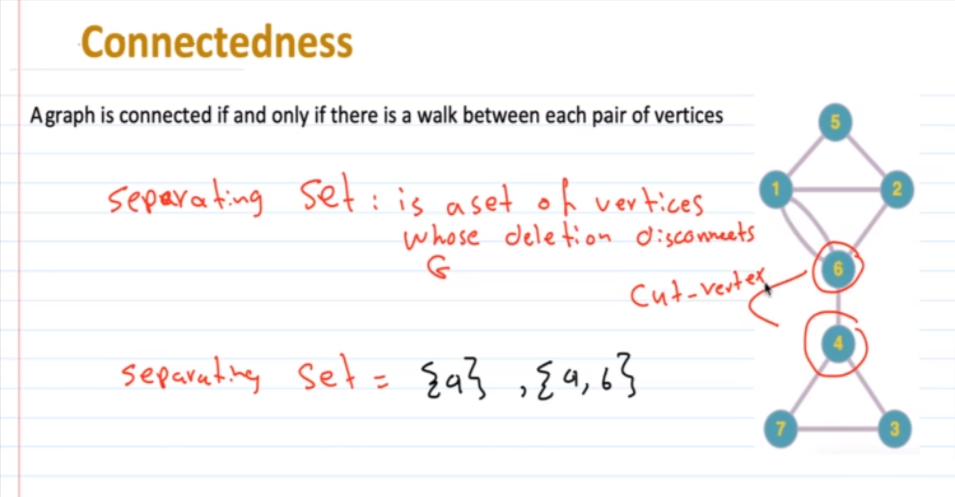 Connectedness
A graph is connected if and only if there is a walk between each pair of vertices
5
separating set : is a set of vertices
1
2
whose deletion disconnects
G
6
Cut-vertex
4
separating set = {a} , {a, b}
7
3